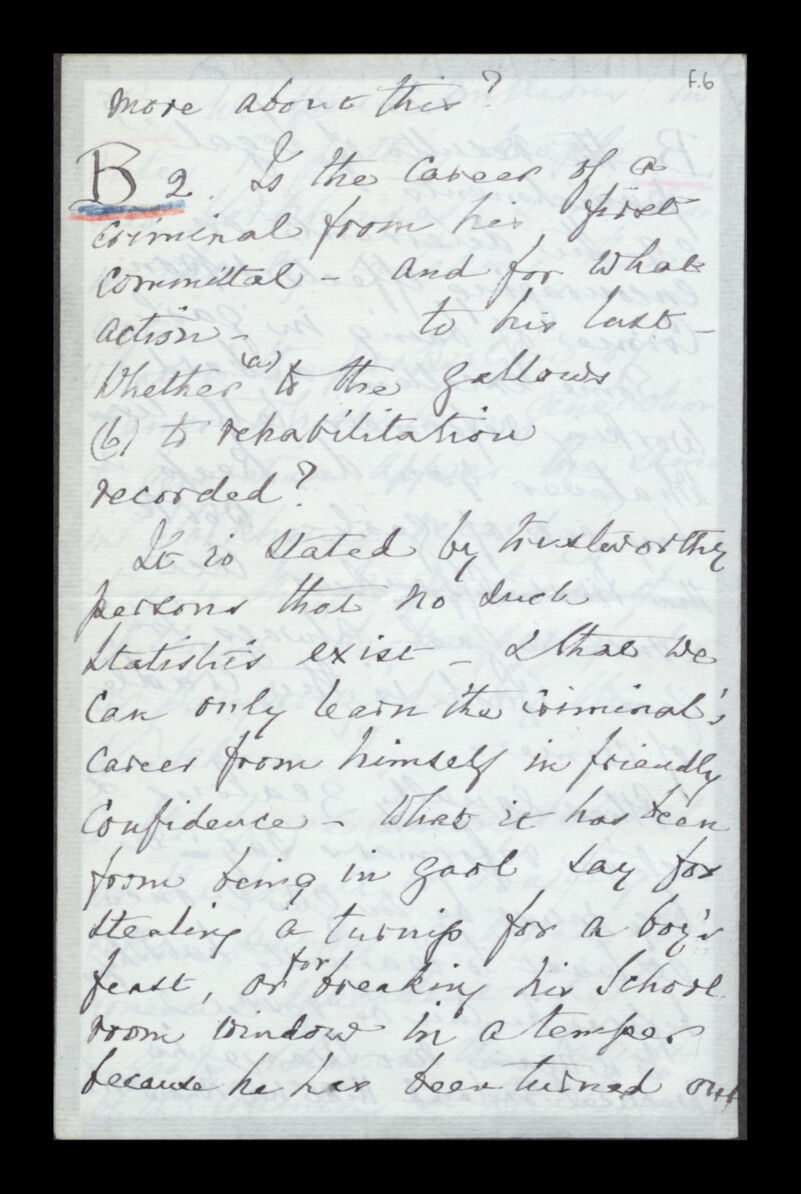 f.6
more about this?
B 2. Is the career of a
criminal from his first
committal - and for what
action - to his last -
whether (a) to the gallows
(b) to rehabilitation
recorded?
It is stated by trustworthy
persons that no such
statistics exist - & that we
can only learn the criminal's
career from himself in friendly
confidence - what it has been
from being in gaol say for
stealing a turnip for a boy's
feast, or for breaking his School
room window in a temper
because he has been turned out